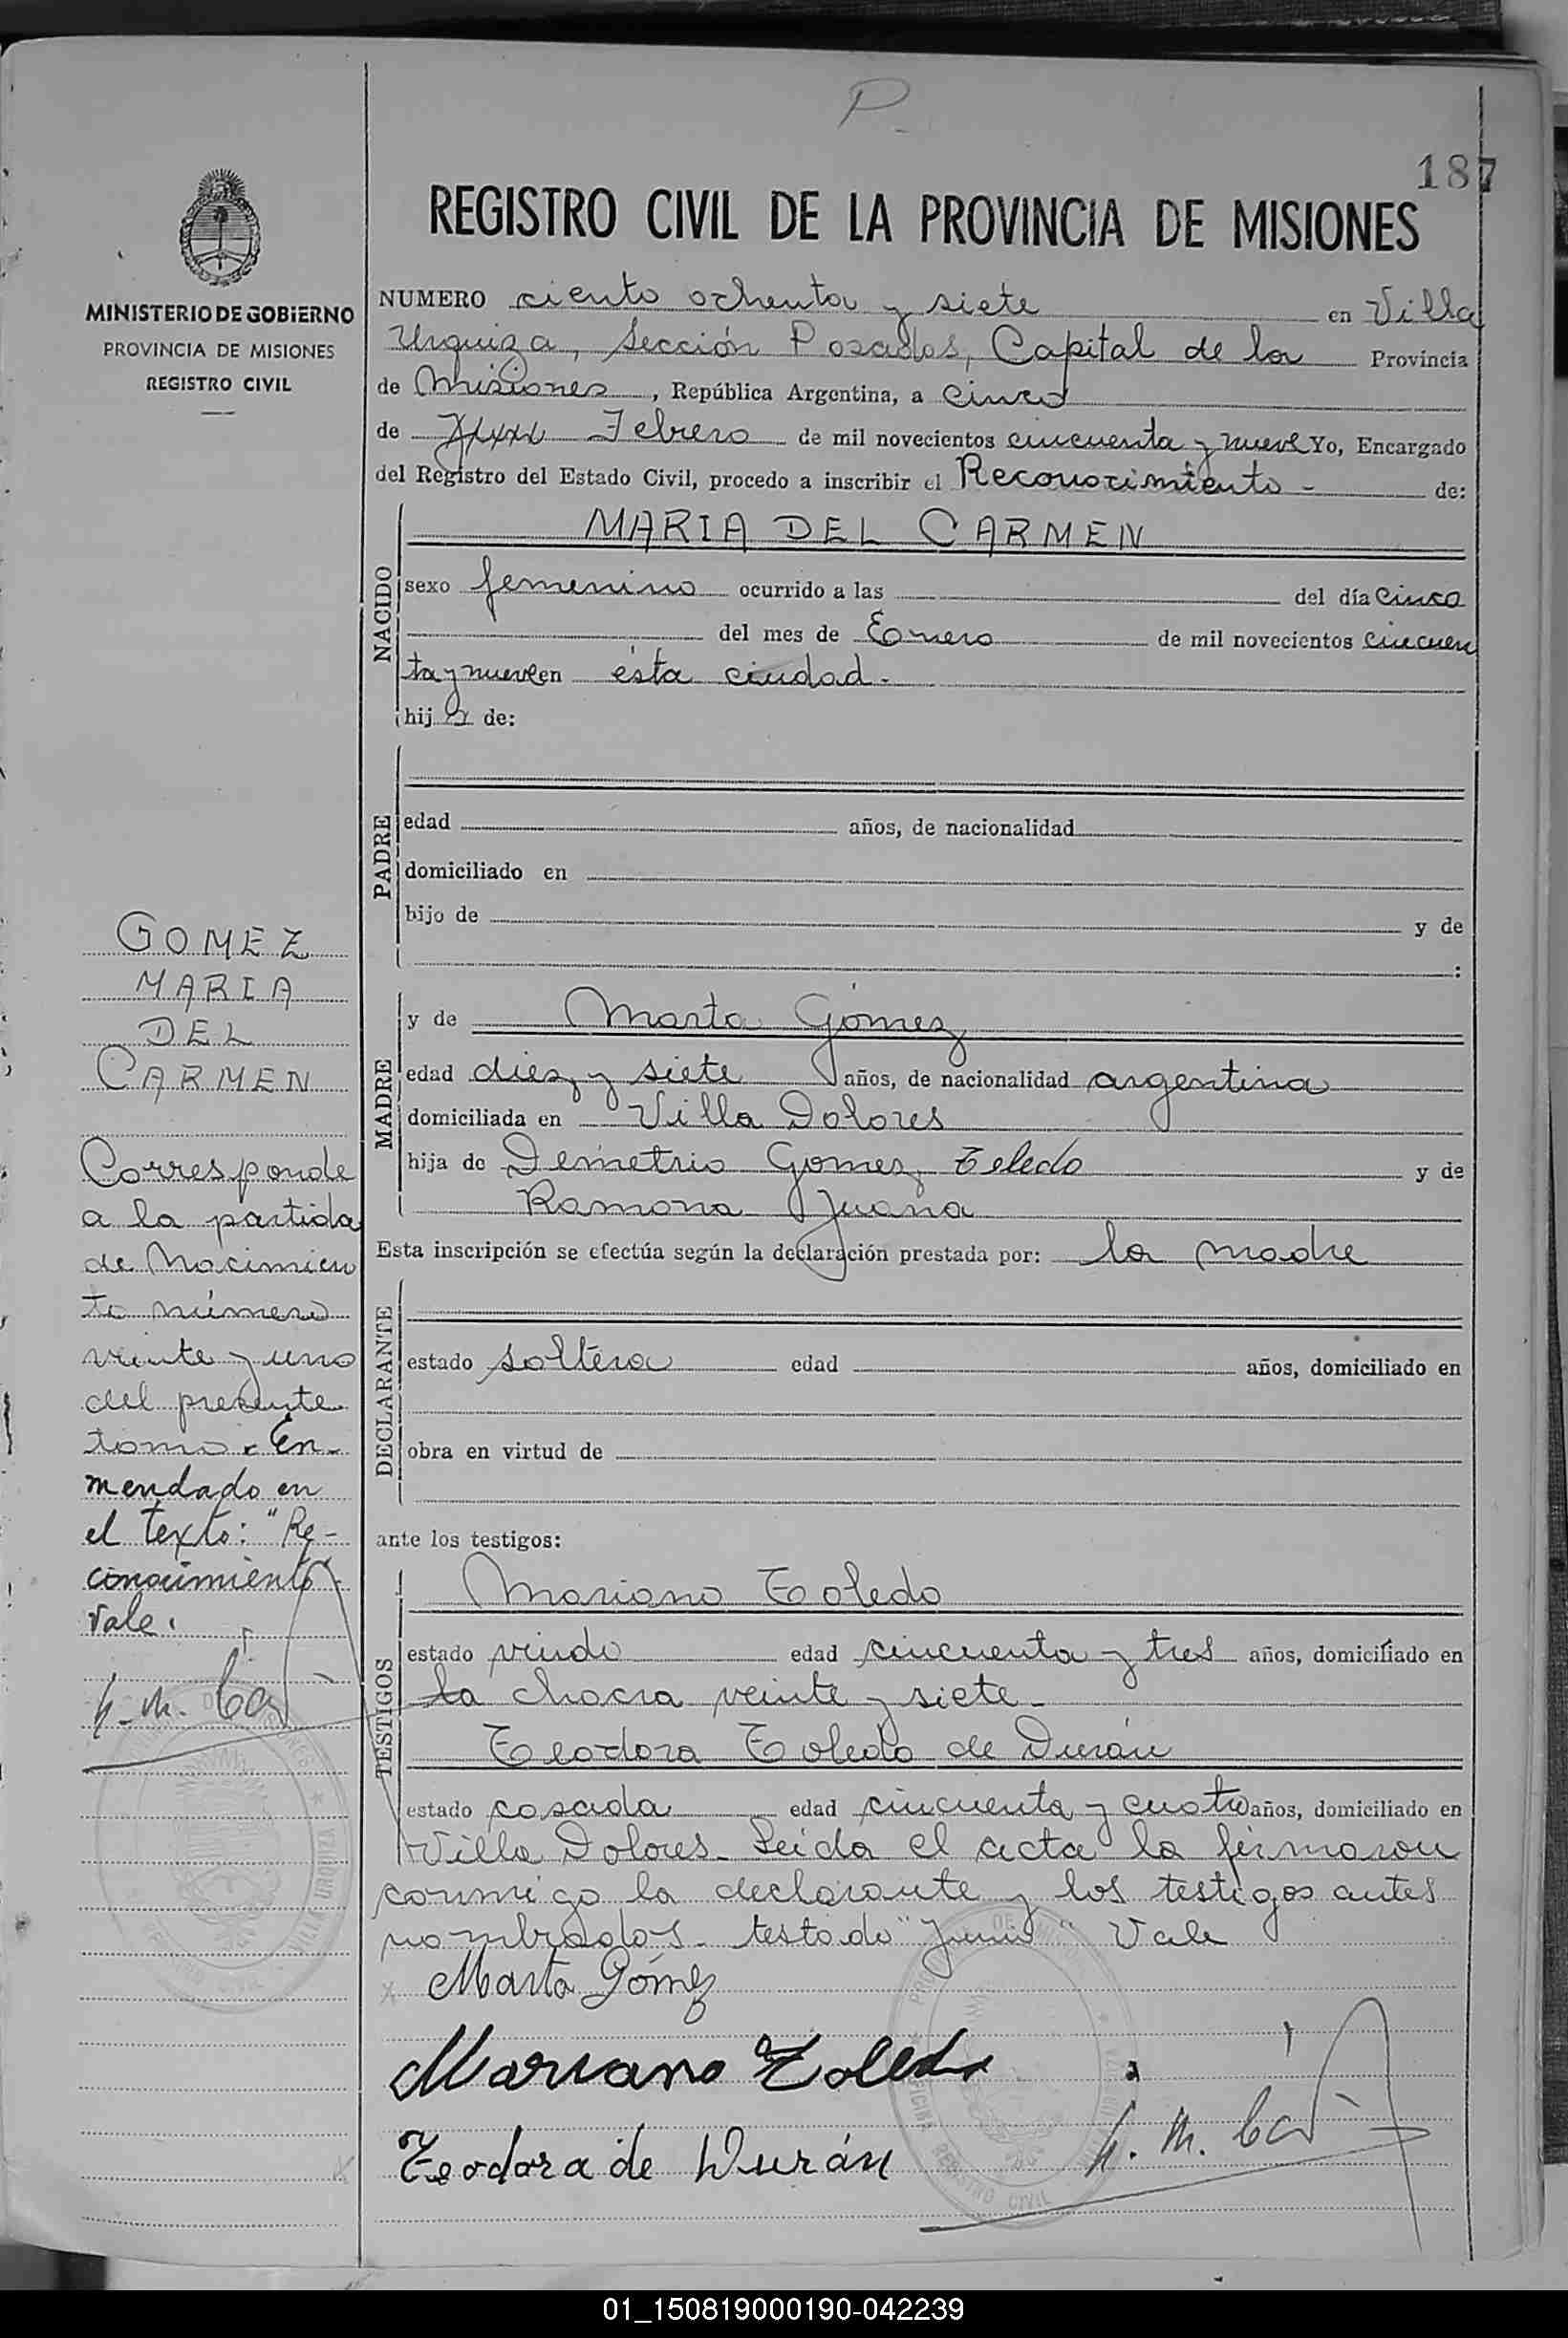 P
187
REGISTRO CIVIL DE LA PROVINCIA DE MISIONES
MINISTERIO DE GOBIERNO
PROVINCIA DE MISIONES
REGISTRO CIVIL
NUMERO ciento ochenta y siete en Villa
Urquiza, Sección Posadas, Capital de la Provincia
de Misiones, República Argentina, a cinco
de Febrero de mil novecientos cincuenta y nueve Yo, Encargado
del Registro del Estado Civil, procedo a inscribir el Reconocimiento - de:
NACIDO
MARIA DEL CARMEN
sexo femenino ocurrido a las del día cinco
del mes de Enero de mil novecientos cincuen
ta y nueve en ésta ciudad.
hija de:
PADRE
edad años, de nacionalidad
domiciliado en
hijo de y de
:
MADRE
y de Marta Gómez
edad diez y siete años, de nacionalidad argentina
domiciliada en Villa Dolores
hija de Demetrio Gomez Toledo y de
Ramona Juana
Esta inscripción se efectúa según la declaración prestada por: la madre
DECLARANTE
estado soltera edad años, domiciliado en
obra en virtud de
ante los testigos:
TESTIGOS
Mariano Toledo
estado viudo edad cincuenta y tres años, domiciliado en
la chacra veinte y siete-
Teodora Toledo de Durán
estado casada edad cincuenta y cuatro años, domiciliado en
Villa Dolores- Leida el acta la firmaron
conmigo la declarante y los testigos antes
nombrados- testado "Junio" Vale
Marta Gómez
Mariano Toledo
Teodora de Durán
GOMEZ
MARIA
DEL
CARMEN
Corresponde
a la partida
de Nacimien
to número
veinte y uno
del presente
tomo. En-
mendado en
el texto: "Re-
conocimiento"
Vale.
01_150819000190-042239